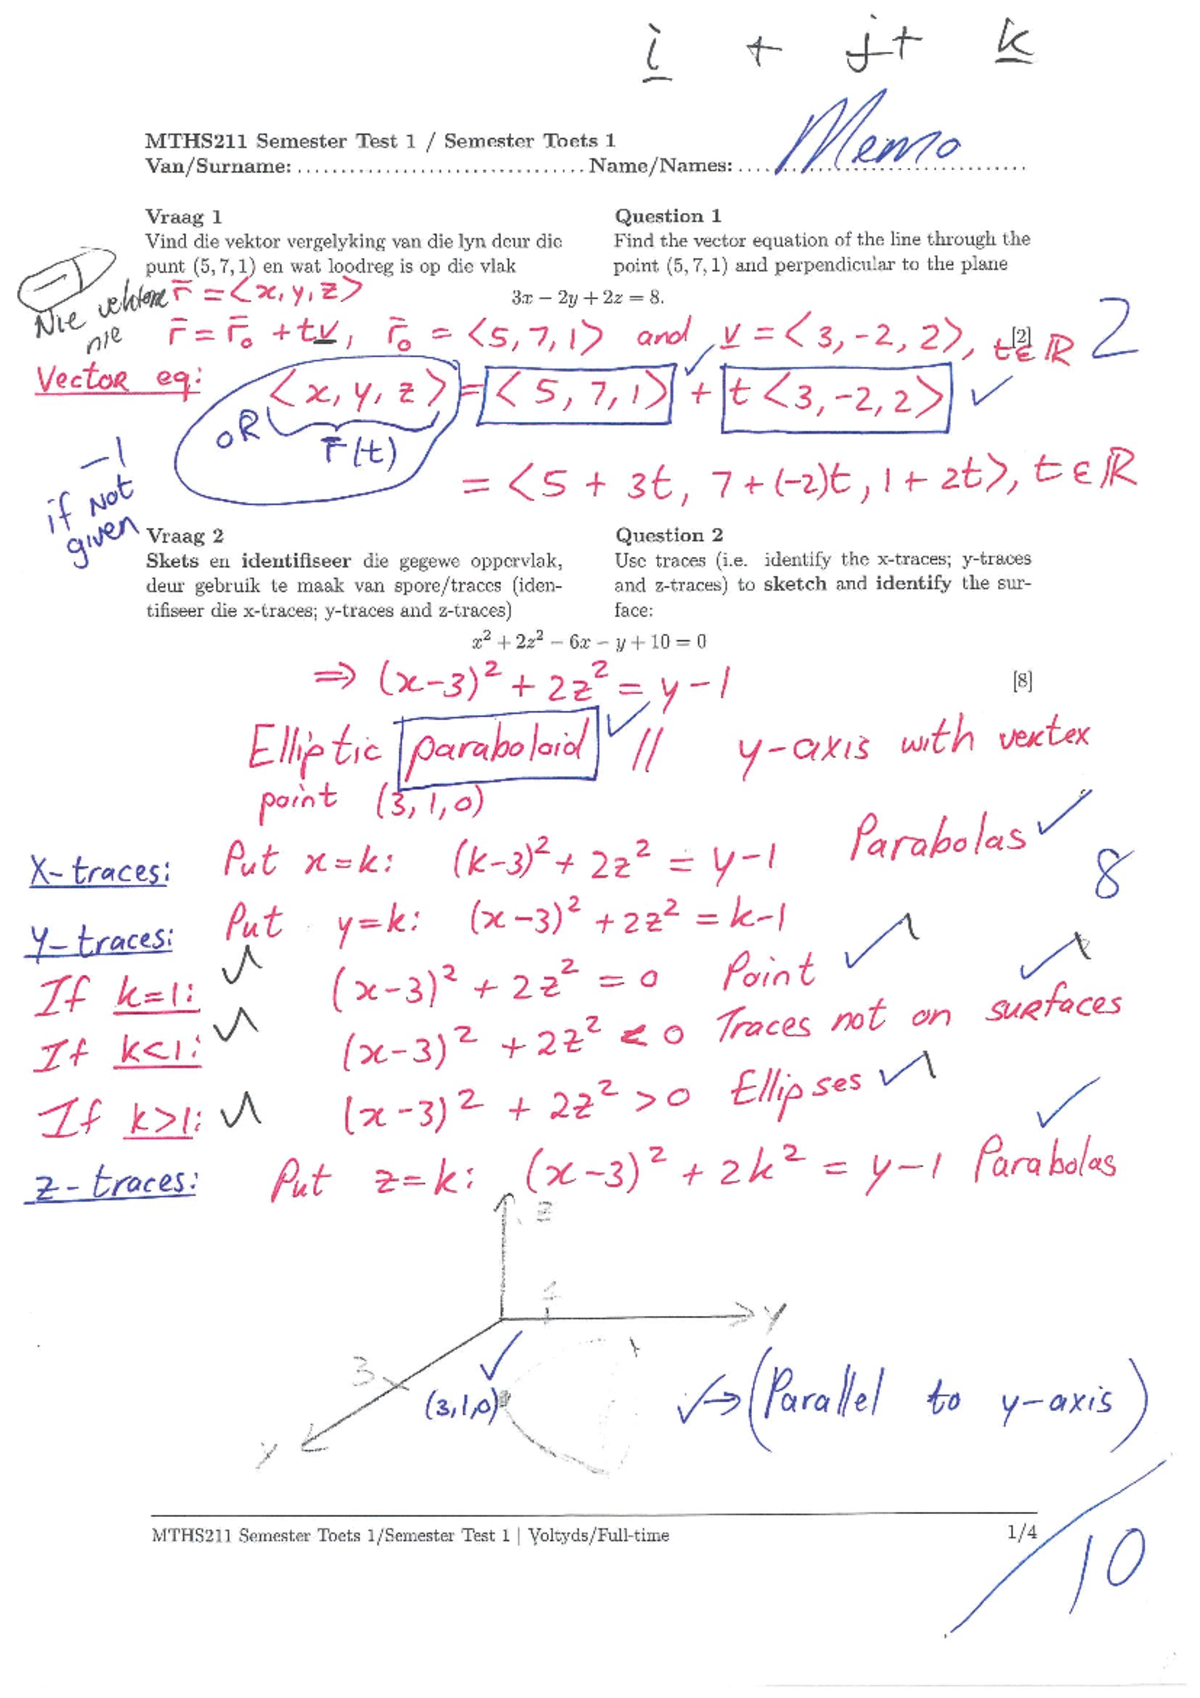 i + j + k
MTHS211 Semester Test 1 / Semester Toets 1
Van/Surname: ................................ Name/Names: ................................
Memo
Vraag 1
Vind die vektor vergelyking van die lyn deur die
punt (5, 7, 1) en wat loodreg is op die vlak
Question 1
Find the vector equation of the line through the
point (5, 7, 1) and perpendicular to the plane
3x − 2y + 2z = 8.
[2]
-1
Nie vektore
nie
r̄ = <x, y, z>
r̄ = r̄₀ + tv, r̄₀ = <5, 7, 1> and v = <3, -2, 2>, t ∈ ℝ
2
Vector eq: <x, y, z> = <5, 7, 1> + t<3, -2, 2> ✓
OR r̄(t)
= <5 + 3t, 7 + (-2)t, 1 + 2t>, t ∈ ℝ
-1
if Not
given
Vraag 2
Skets en identifiseer die gegewe oppervlak,
deur gebruik te maak van spore/traces (iden-
tifiseer die x-traces; y-traces and z-traces)
Question 2
Use traces (i.e. identify the x-traces; y-traces
and z-traces) to sketch and identify the sur-
face:
x² + 2z² − 6x − y + 10 = 0
[8]
⇒ (x-3)² + 2z² = y-1
Elliptic paraboloid ✓ // y-axis with vertex
point (3, 1, 0)
X-traces: Put x=k: (k-3)² + 2z² = y-1 Parabolas ✓
8
Y-traces: Put y=k: (x-3)² + 2z² = k-1
If k=1: (x-3)² + 2z² = 0 Point
If k<1: (x-3)² + 2z² < 0 Traces not on surfaces
If k>1: (x-3)² + 2z² > 0 Ellipses
z-traces: Put z=k: (x-3)² + 2k² = y-1 Parabolas ✓
z
1
y
3
(3,1,0)
x
✓→ (Parallel to y-axis)
MTHS211 Semester Toets 1/Semester Test 1 | Voltyds/Full-time
1/4
/10